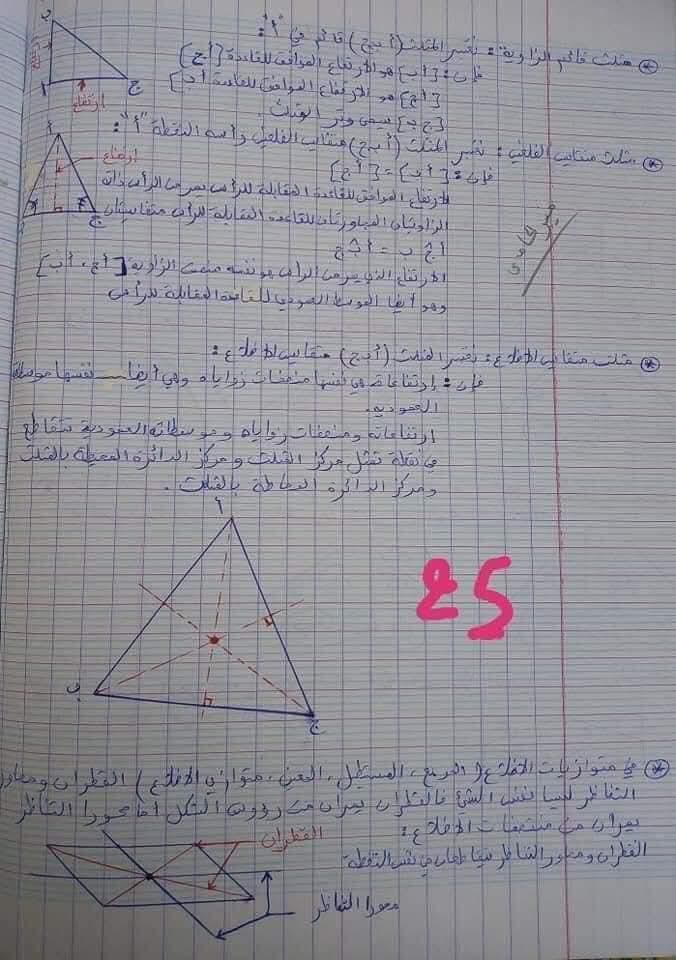 * مثلث قائم الزاوية: نعتبر المثلث (أ ب ج) قائم في "أ":
فإن: [أ ب] هو الارتفاع الموافق للقاعدة [أ ج]
[أ ج] هو الارتفاع الموافق للقاعدة [أ ب]
[ج ب] يسمى وتر المثلث.
ب
ا
ج
ارتفاع
* مثلث متقايس الضلعين: نعتبر المثلث (أ ب ج) متقايس الضلعين رأسه النقطة "أ":
فإن: [أ ب] = [أ ج]
الارتفاع الموافق للقاعدة المقابلة للرأس يمر من الرأس ذاته
الزاويتان المجاورتان للقاعدة المقابلة للرأس متقايستان
أ ج ب = أ ب ج
الارتفاع الذي يمر من الرأس هو نفسه منصف الزاوية [أ ج ، أ ب]
وهو أيضا الموسط العمودي للقاعدة المقابلة للرأس
أ
ارتفاع
ج
* مثلث متقايس الأضلاع: نعتبر المثلث (أ ب ج) متقايس الأضلاع:
فإن: ارتفاعاته هي نفسها منصفات زواياه وهي أيضا نفسها
العمودية.
ارتفاعاته ومنصفات زواياه وموسطاته العمودية تتقاطع
في نقطة تمثل مركز المثلث ومركز الدائرة المحيطة بالمثلث
ومركز الدائرة المحاطة بالمثلث.
أ
ب
ج
25
* في متوازيات الأضلاع (المربع، المستطيل، المعين، متوازي الأضلاع) القطران ومحاور
التناظر ليسا نفس الشئ فالقطران يمران من رؤوس الشكل أما محورا التناظر
يمران من منتصفات الأضلاع:
القطران ومحورا التناظر يتقاطعان في نفس النقطة.
القطران
محورا التناظر